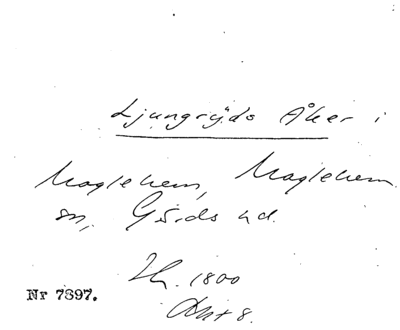 Ljungryds Åker i
Maglehem, Maglehem
sn, Gärds hd.
1800
Akt 8.
Nr 7897.